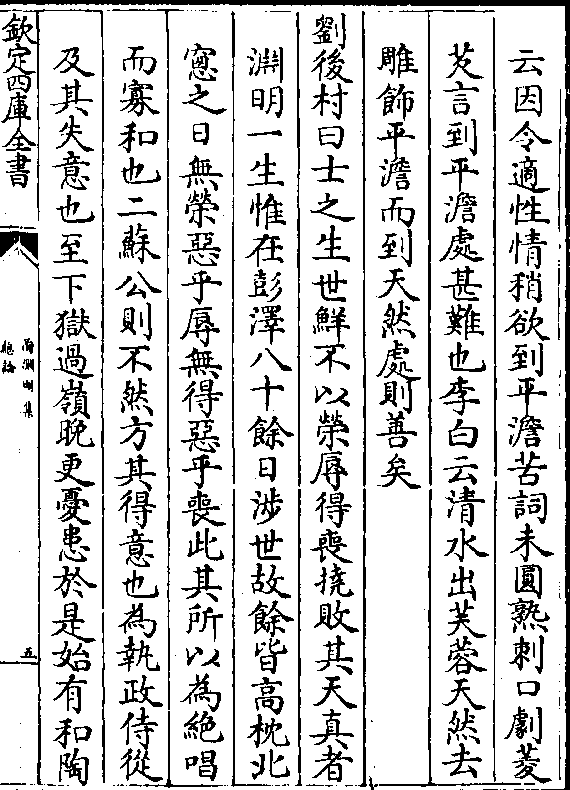 云因令適性情稍欲到平澹苦詞未圓熟刺口劇菱
芡言到平澹處甚難也李白云清水出芙蓉天然去
雕飾平澹而到天然處則善矣
劉後村曰士之生世鮮不以榮辱得喪撓敗其天真者
淵明一生惟在彭澤八十餘日涉世故餘皆高枕北
窻之日無榮惡乎辱無得惡乎喪此其所以為絶唱
而寡和也二蘇公則不然方其得意也為執政侍從
及其失意也至下獄過嶺晚更憂患於是始有和陶
欽定四庫全書
陶淵明集
總論
五